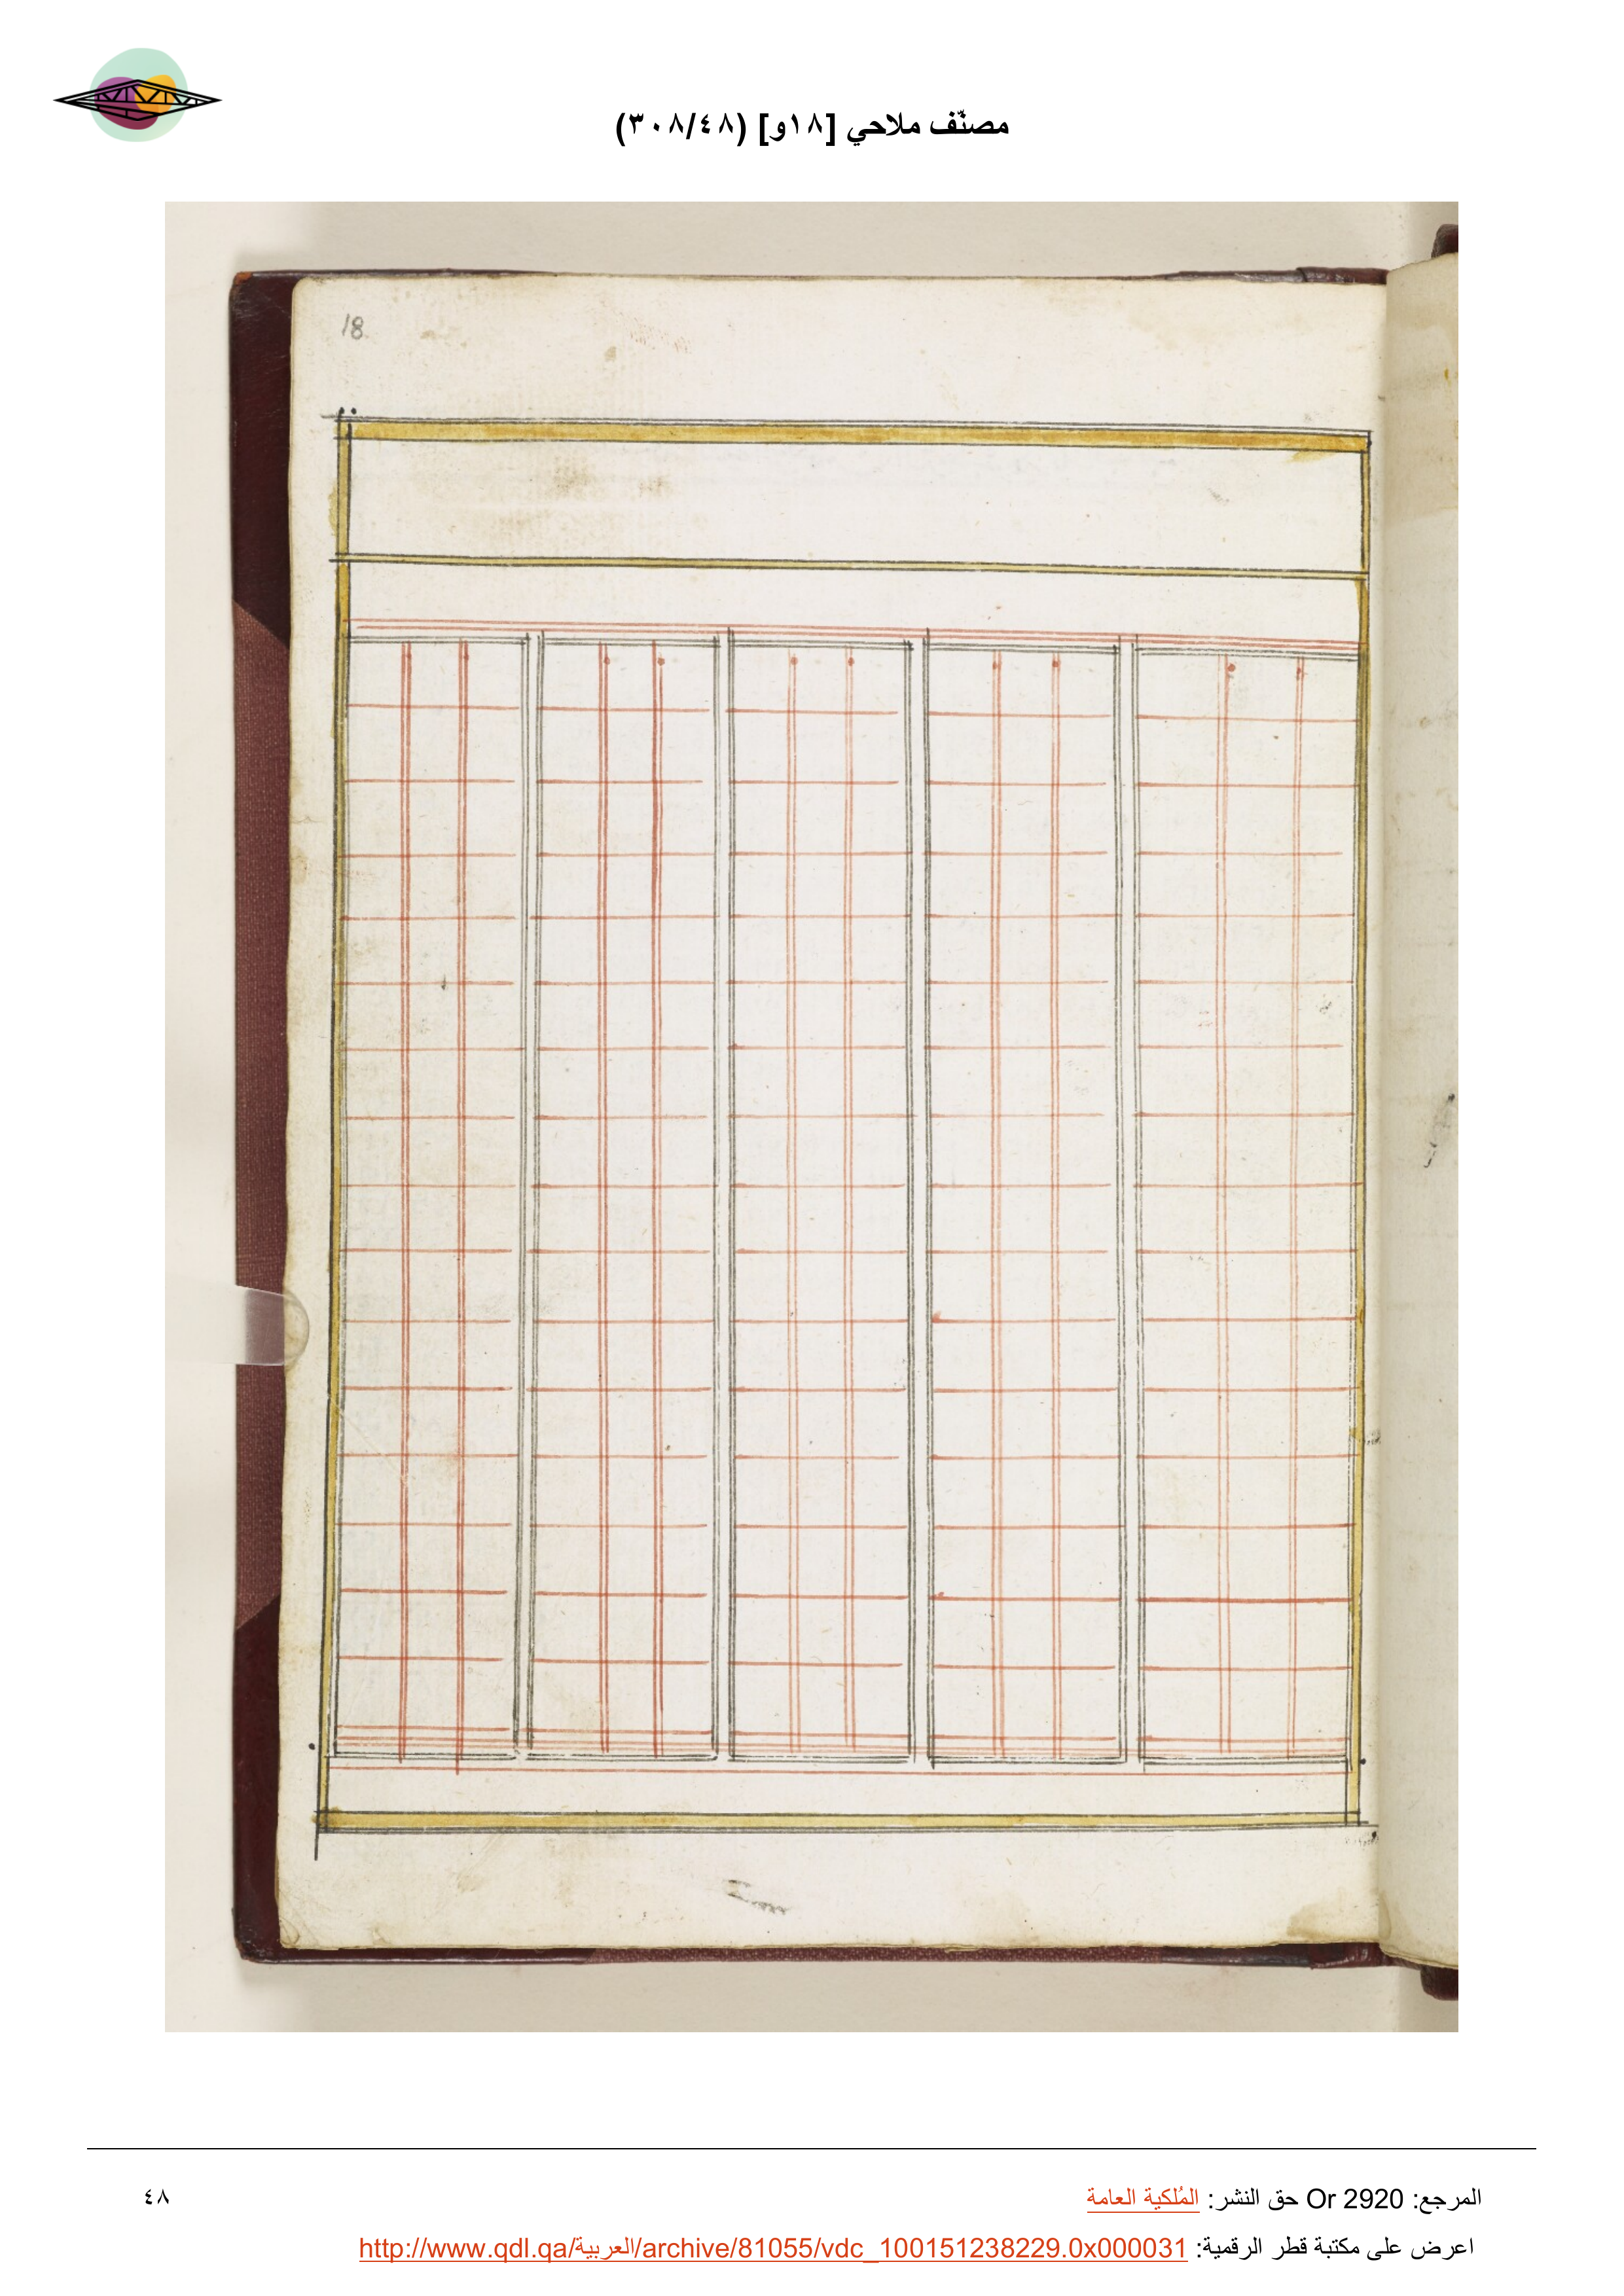 مصنّف ملاحي [١٨و] (٣٠٨/٤٨)
18
المرجع: Or 2920 حق النشر: المُلكية العامة
٤٨
اعرض على مكتبة قطر الرقمية: http://www.qdl.qa/العربية/archive/81055/vdc_100151238229.0x000031